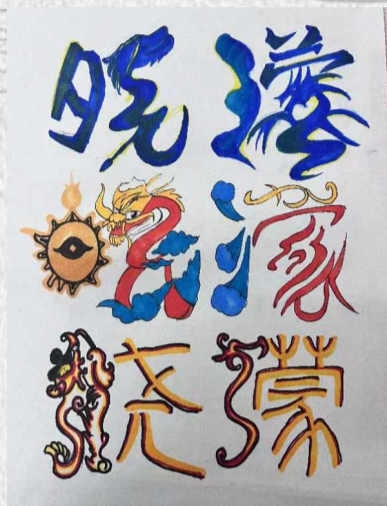 晓濛
晓濛
晓濛